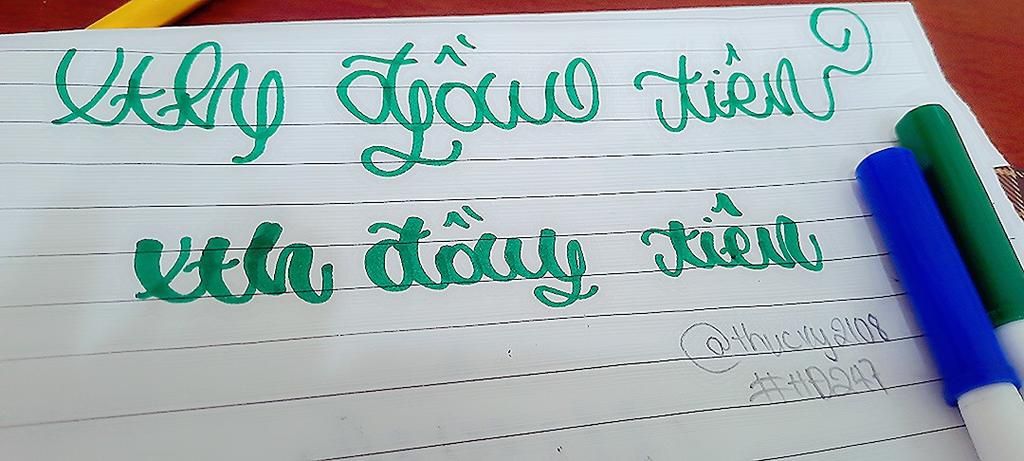 vth đầu tiên
vth đầu tiên
@thucvy2108
#HD247